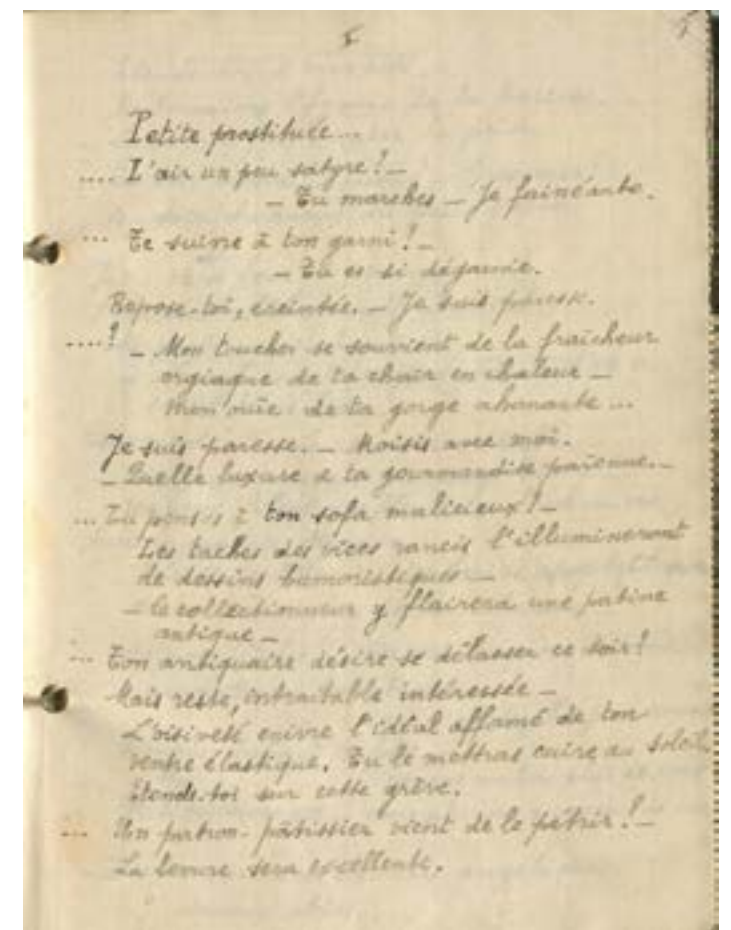 I
Petite prostituée...
.... L'air un peu satyre! _
_ Tu marches _ Je fainéante.
... Te suivre à ton garni! _
_ Tu es si dégarnie.
Repose-toi, éreintée. _ Je suis paresse.
....! _ Mon toucher se souvient de la fraîcheur
orgiaque de ta chair en chaleur _
Mon ouïe: de ta gorge ahanante ...
Je suis paresse. _ Moisis avec moi.
_ Quelle luxure a ta gourmandise païenne. _
... Tu penses à ton sofa malicieux! _
Les taches des vices rancis l'illumineront
de dessins humoristiques _
_ le collectionneur y flairera une patine
antique _
... Ton antiquaire désire se délasser ce soir!
Mais reste, intraitable intéressée _
L'oisiveté enivre l'idéal affamé de ton
ventre élastique. Tu le mettras cuire au soleil,
étends-toi sur cette grève.
... Un patron-pâtissier vient de le pétrir! _
La sera excellente.